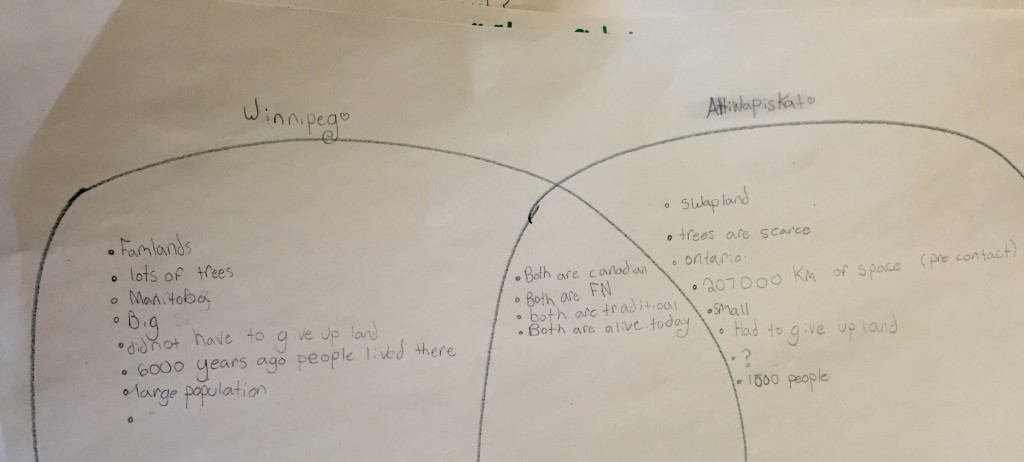 Winnipeg
• Famlands
• lots of trees
• Manitoba
• Big
• did not have to give up land
• 6000 years ago people lived there
• large population
•
• Both are canadian
• Both are FN
• both are traditional
• Both are alive today
AttiWapiskat
• swapland
• trees are scarce
• ontario
• 207000 KM of space (pre contact)
• small
• Had to give up land
• ?
• 1500 people